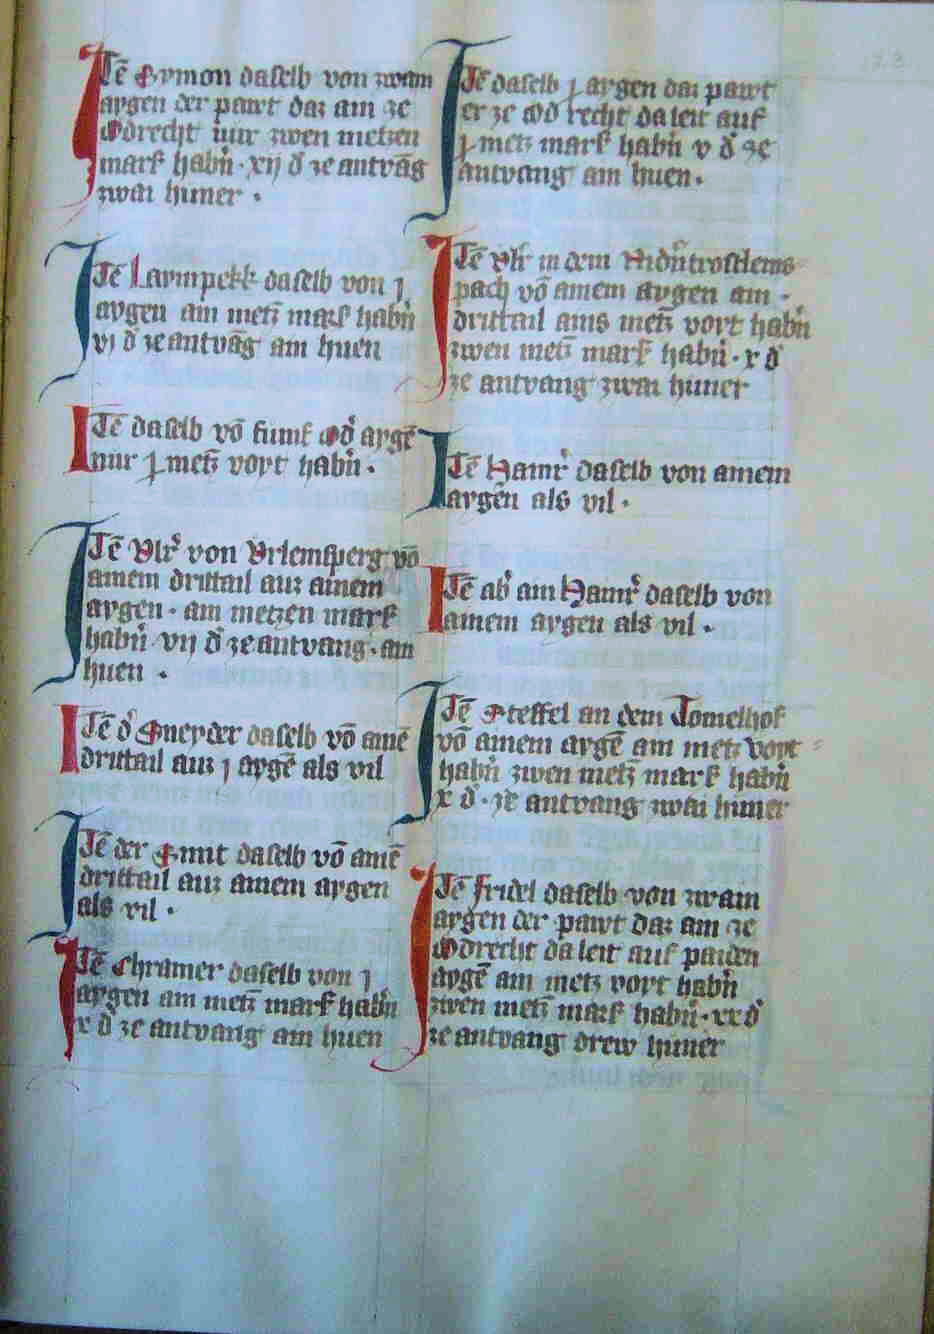 Itē Symon daselb von zwain
aygen der pawt daz am ze
Odrecht nur zwen metzen
mark habn̄ · xij d̄ ze antvāg
zwai huner ·
Itē Laympekk daselb von j
aygen ain metz̄ mark habn̄
vj d̄ ze antvāg ain huen
Itē daselb vō fumf Od̄ aygē
nur j metz̄ voyt habn̄ ·
Itē Vlr̄ von Vrlemsperg vō
ainem drittail auz ainem
aygen · ain metzen mark
habn̄ vij d̄ ze antvang · ain
huen ·
Itē d̄ Sneyder daselb vō ainē
drittail auz j aygē als vil
Itē der Smit daselb vō ainē
drittail auz ainem aygen
als vil ·
Itē Chramer daselb von j
aygen ain metz̄ mark habn̄
x d̄ ze antvang ain huen
Itē daselb j aygen daz pawt
er ze Od recht da leit auf
j metz mark habn̄ v d̄ ze
antvang ain huen ·
Itē Vlr in dem Nidn̄trostlems
pach vō ainem aygen ain ·
drittail ains metz̄ voyt habn̄
zwen metz̄ mark habn̄ · x d̄
ze antvang zwai huner
Itē Hainr̄ daselb von ainem
aygen als vil ·
Itē ab̄ ain Hainr̄ daselb von
ainem aygen als vil ·
Itē Steffel an dem Tomelhof
vō ainem aygē ain metz voyt
habn̄ zwen metz̄ mark habn̄
x d̄ · ze antvang zwai huner
Itē Fridel daselb von zwain
aygen der pawt daz ain ze
Odrecht da leit auf paiden
aygē ain metz voyt habn̄
zwen metz̄ mark habn̄ · xx d̄
ze antvang drew huner